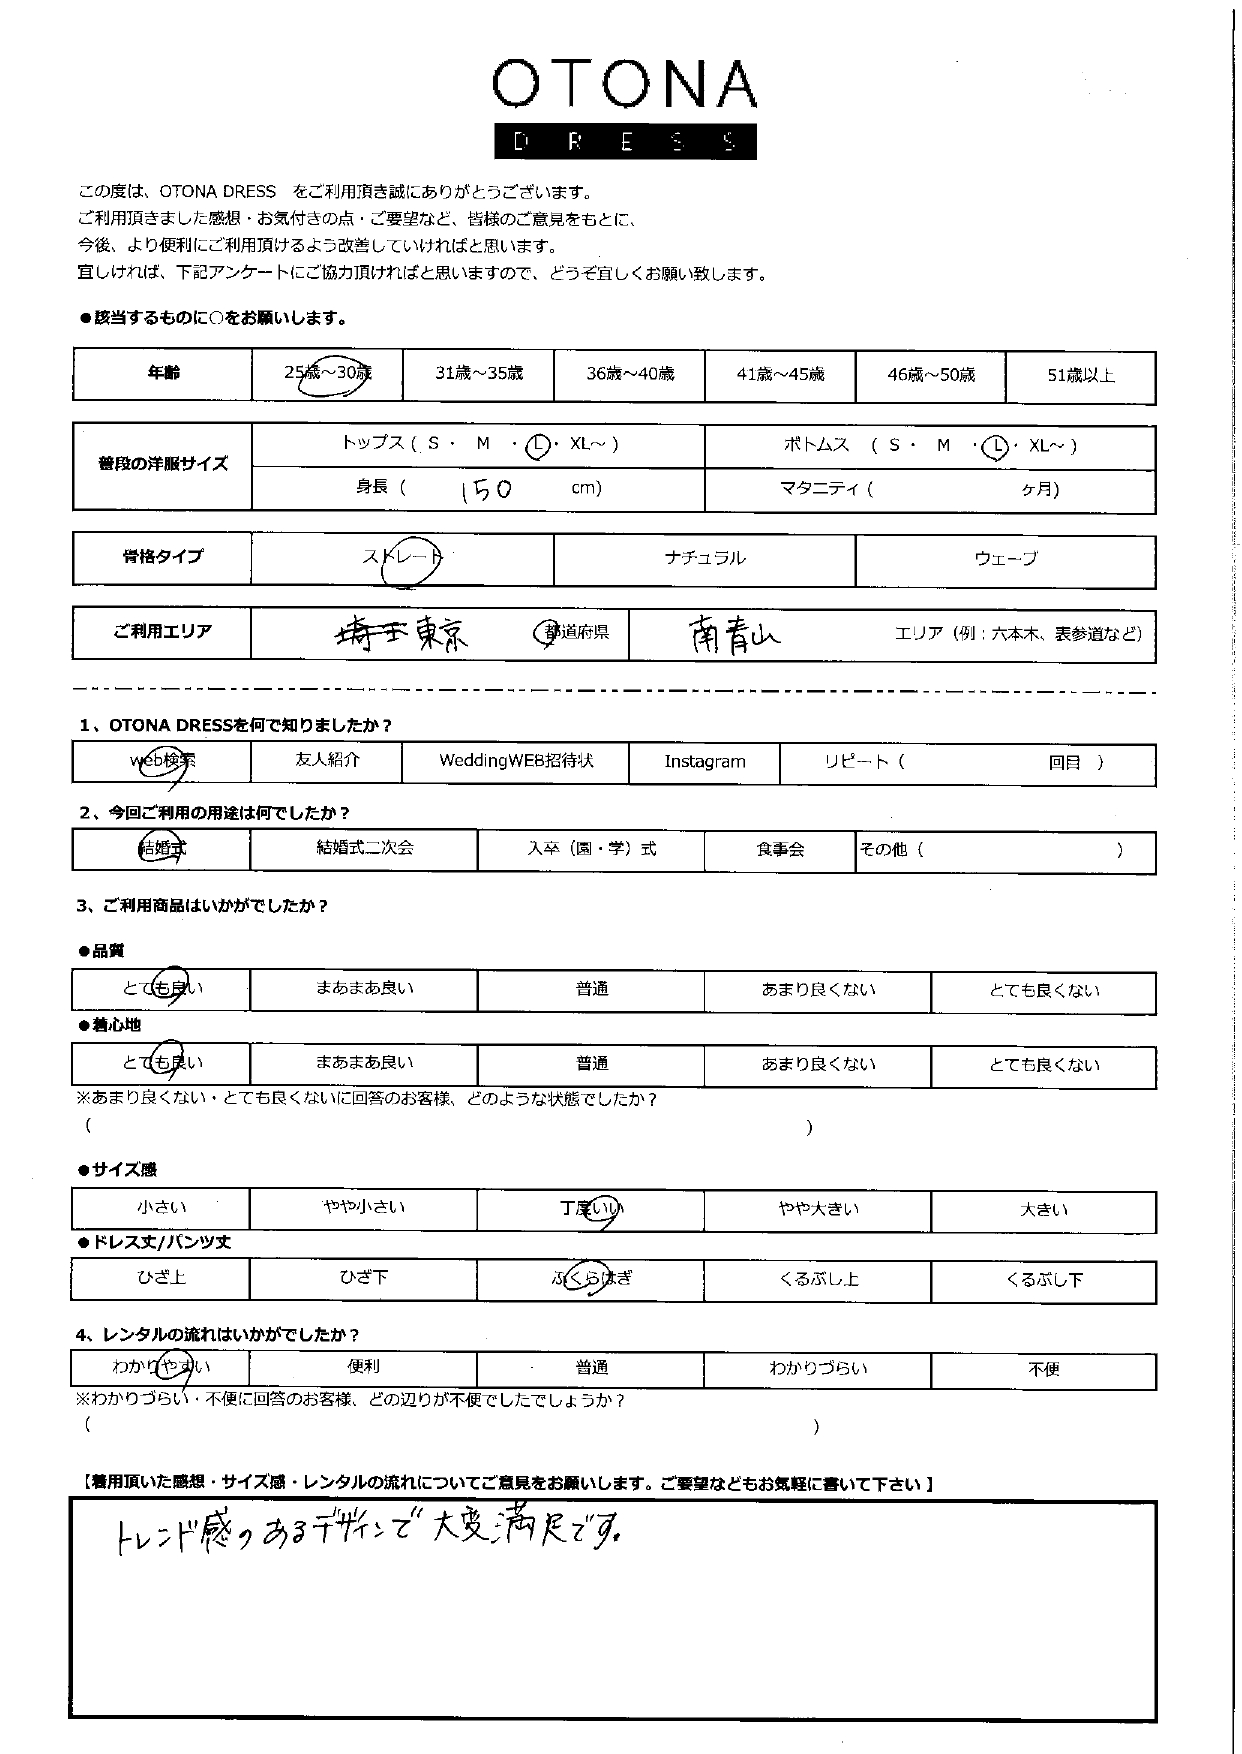 OTONA
DRESS
この度は、OTONA DRESS　をご利用頂き誠にありがとうございます。
ご利用頂きました感想・お気付きの点・ご要望など、皆様のご意見をもとに、
今後、より便利にご利用頂けるよう改善していければと思います。
宜しければ、下記アンケートにご協力頂ければと思いますので、どうぞ宜しくお願い致します。
●該当するものに○をお願いします。
年齢 25歳～30歳 31歳～35歳 36歳～40歳 41歳～45歳 46歳～50歳 51歳以上
普段の洋服サイズ
トップス ( S ・ M ・ L ・ XL～ ) ボトムス ( S ・ M ・ L ・ XL～ )
身長 ( 150 cm) マタニティ ( ヶ月)
骨格タイプ ストレート ナチュラル ウェーブ
ご利用エリア 埼玉 東京 都道府県 南青山 エリア（例：六本木、表参道など）
1、OTONA DRESSを何で知りましたか？
web検索 友人紹介 WeddingWEB招待状 Instagram リピート（ 回目 ）
2、今回ご利用の用途は何でしたか？
結婚式 結婚式二次会 入卒（園・学）式 食事会 その他（ ）
3、ご利用商品はいかがでしたか？
●品質
とても良い まあまあ良い 普通 あまり良くない とても良くない
●着心地
とても良い まあまあ良い 普通 あまり良くない とても良くない
※あまり良くない・とても良くないに回答のお客様、どのような状態でしたか？
（ ）
●サイズ感
小さい やや小さい 丁度いい やや大きい 大きい
●ドレス丈/パンツ丈
ひざ上 ひざ下 ふくらはぎ くるぶし上 くるぶし下
4、レンタルの流れはいかがでしたか？
わかりやすい 便利 普通 わかりづらい 不便
※わかりづらい・不便に回答のお客様、どの辺りが不便でしたでしょうか？
（ ）
【着用頂いた感想・サイズ感・レンタルの流れについてご意見をお願いします。ご要望などもお気軽に書いて下さい 】
トレンド感のあるデザインで大変満足です。